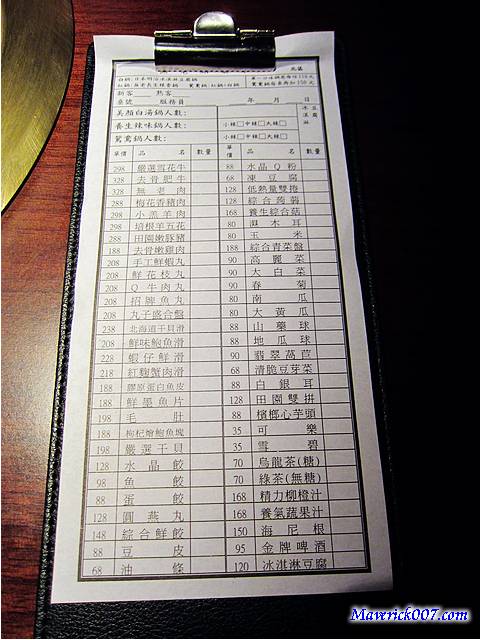 白鍋:日本明治冰淇淋豆腐鍋
單一口味鍋底每位110元
鴛鴦鍋底每位加150元
新客 熟客
桌號 服務員 年 月 日
美顏白湯鍋人數: 冰淇淋豆腐
養生辣味鍋人數: 小辣□中辣□大辣□
鴛鴦鍋人數: 小辣□中辣□大辣□
單價 品名 數量 單價 品名 數量
298 嚴選雪花牛 88 水晶Q粉
328 去骨肥牛 68 凍豆腐
328 無老肉 128 低熱量雙捲
288 梅花香豬肉 128 綜合蒟蒻
298 小羔羊肉 168 養生綜合菇
298 培根羊五花 80 黑木耳
288 田園嫩豚豬 80 玉米
188 去骨嫩雞肉 188 綜合青菜盤
208 手工鮮蝦丸 90 高麗菜
208 鮮花枝丸 90 大白菜
208 Q牛肉丸 90 春菊
208 招牌魚丸 80 南瓜
208 丸子盛合盤 80 大黃瓜
238 北海道干貝滑 88 山藥球
208 鮮味鮑魚滑 88 地瓜球
228 蝦仔鮮滑 90 翡翠萵苣
218 紅麴蟹肉滑 68 清脆豆芽菜
188 膠原蛋白魚皮 88 白銀耳
188 鮮墨魚片 128 田園雙拼
198 毛肚 88 檳榔心芋頭
188 枸杞燴鮑魚塊 35 可樂
198 嚴選干貝 35 雪碧
128 水晶餃 70 烏龍茶(糖)
98 魚餃 70 綠茶(無糖)
88 蛋餃 168 精力柳橙汁
128 圓燕丸 168 養氣蔬果汁
148 綜合鮮餃 150 海尼根
88 豆皮 95 金牌啤酒
68 油條 120 冰淇淋豆腐
Maverick007.com